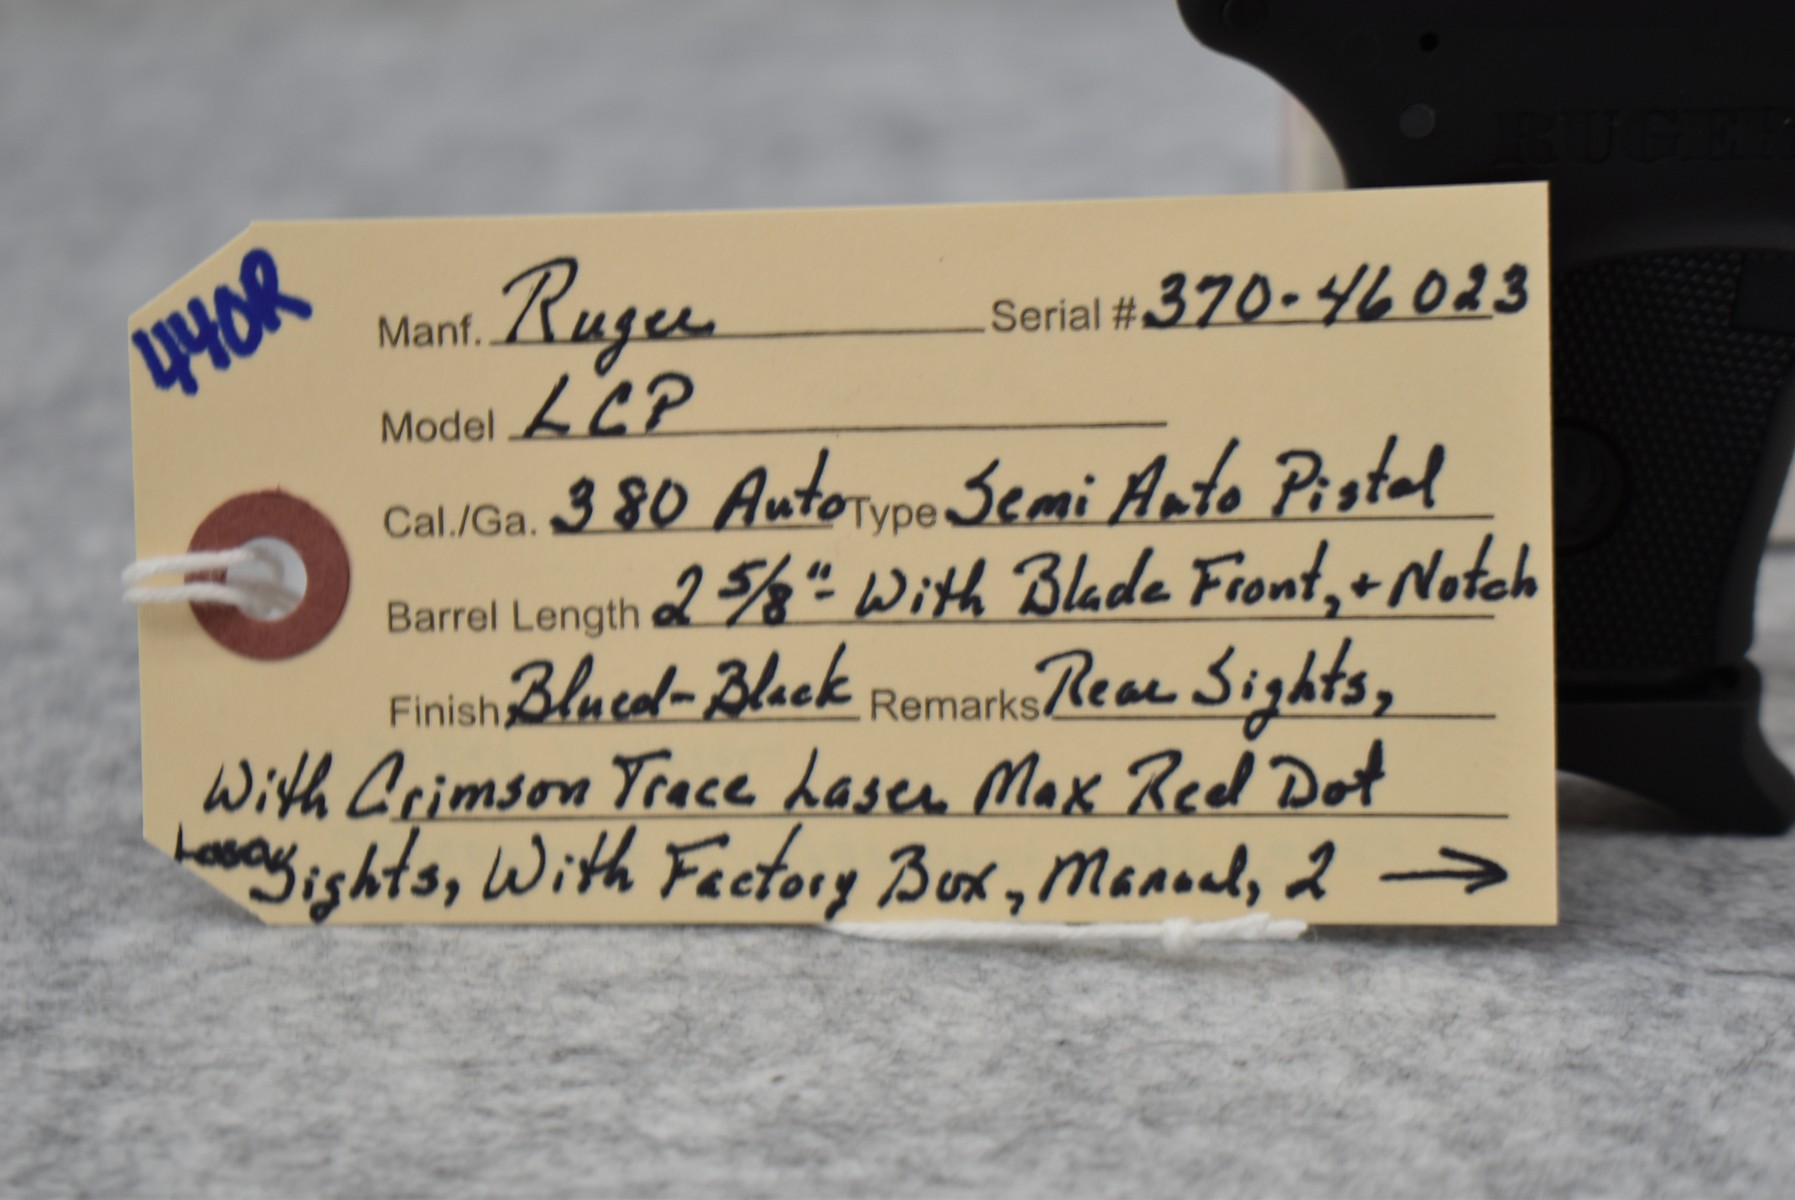 440R
Manf. Ruger Serial # 370-46023
Model LCP
Cal./Ga. 380 Auto Type Semi Auto Pistol
Barrel Length 2 5/8"- With Blade Front, + Notch
Finish Blued-Black Remarks Rear Sights,
With Crimson Trace Laser Max Red Dot
Sights, With Factory Box, Manual, 2 →
RUGER